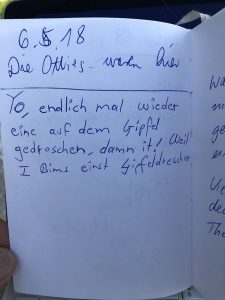 6.5.18
Die Ottlies - waren hier
Yo, endlich mal wieder
eine auf dem Gipfel
gedroschen, damn it! Weil
I Bims einst Gipfeldrescher